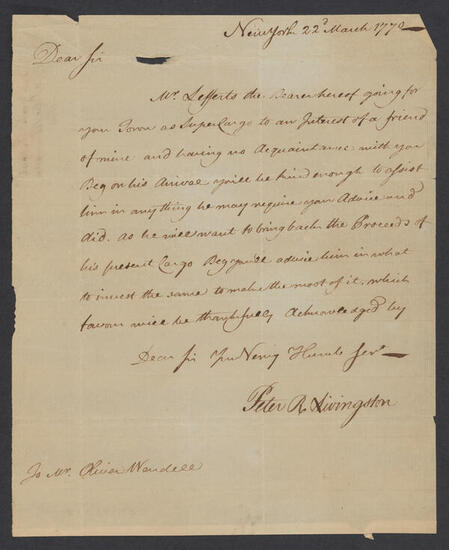 New York 22d March 1770
Dear Sir
Mr. Lefferts the Bearer hereof going for
your Town as SuperCargo to an Interest of a friend
of mine and having no Acquaintance with you
Beg on his Arival you'll be kind enough to assist
him in any thing he may require your Advice and
Aid. as he will want to bring back the Proceeds of
his present Cargo Beg you'll advise him in what
to invest the same to make the most of it, which
favour will be thankfully Acknowledged by
Dear Sir Your Very Humb Servt
Peter R Livingston
To Mr. Oliver Wendell